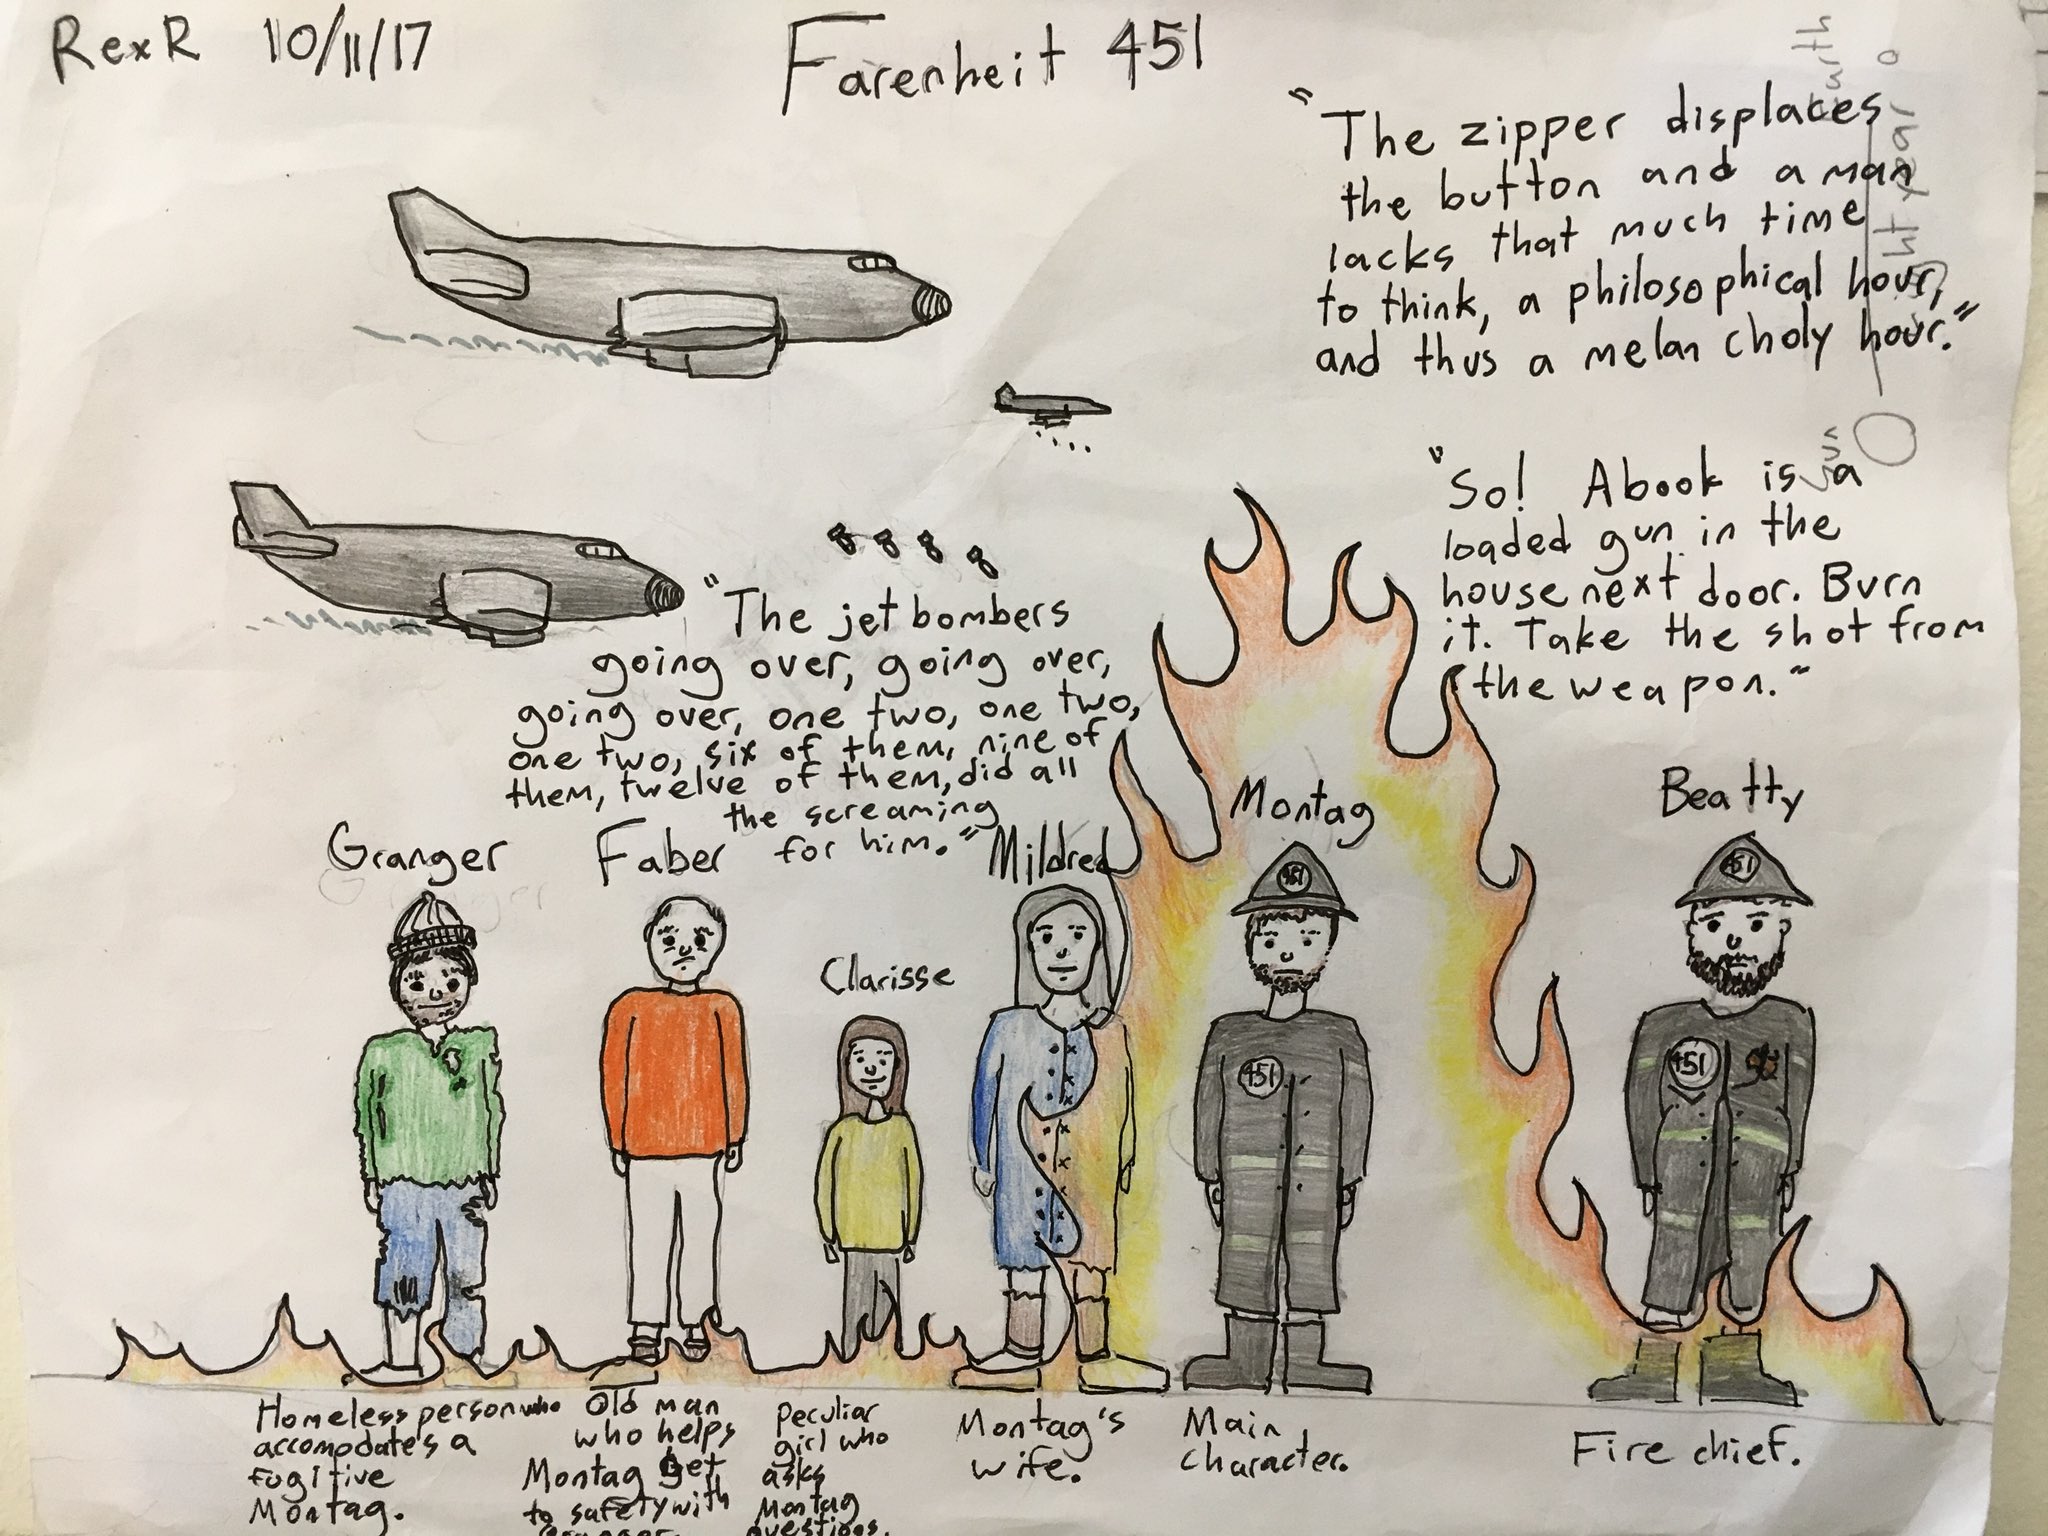 RexR 10/11/17
Farenheit 451
"The zipper displaces
the button and a man
lacks that much time
to think, a philosophical hour,
and thus a melan choly hour."
"So! A book is a
loaded gun in the
house next door. Burn
it. Take the shot from
the weapon."
"The jet bombers
going over, going over,
going over, one two, one two,
one two, six of them, nine of
them, twelve of them, did all
the screaming
for him."
Granger
Faber
Clarisse
Mildred
Montag
Beatty
451
451
451
451
Homeless person who
accomodate's a
fugitive
Montag.
Old man
who helps
Montag get
to safety with
Peculiar
girl who
asks
Montag
questions.
Montag's
wife.
Main
character.
Fire chief.
sun